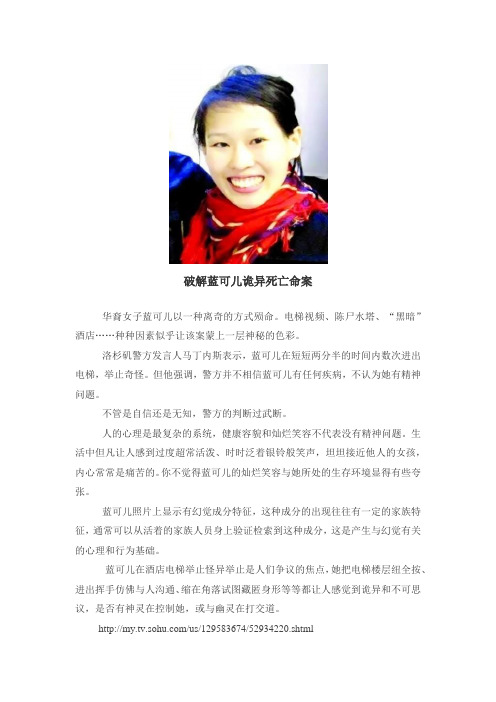 破解蓝可儿诡异死亡命案
华裔女子蓝可儿以一种离奇的方式殒命。电梯视频、陈尸水塔、“黑暗”
酒店……种种因素似乎让该案蒙上一层神秘的色彩。
洛杉矶警方发言人马丁内斯表示，蓝可儿在短短两分半的时间内数次进出
电梯，举止奇怪。但他强调，警方并不相信蓝可儿有任何疾病，不认为她有精神
问题。
不管是自信还是无知，警方的判断过武断。
人的心理是最复杂的系统，健康容貌和灿烂笑容不代表没有精神问题。生
活中但凡让人感到过度超常活泼、时时泛着银铃般笑声，坦坦接近他人的女孩，
内心常常是痛苦的。你不觉得蓝可儿的灿烂笑容与她所处的生存环境显得有些夸
张。
蓝可儿照片上显示有幻觉成分特征，这种成分的出现往往有一定的家族特
征，通常可以从活着的家族人员身上验证检索到这种成分，这是产生与幻觉有关
的心理和行为基础。
蓝可儿在酒店电梯举止怪异举止是人们争议的焦点，她把电梯楼层纽全按、
进出挥手仿佛与人沟通、缩在角落试图藏匿身形等等都让人感觉到诡异和不可思
议，是否有神灵在控制她，或与幽灵在打交道。
http://my.tv.sohu.com/us/129583674/52934220.shtml